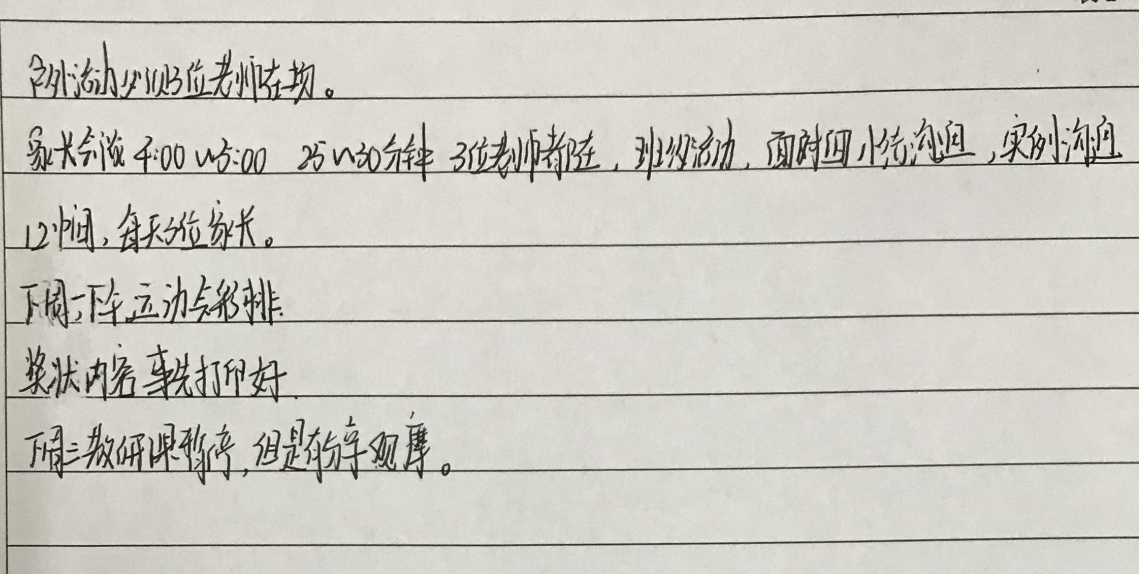 户外活动必须3位老师在场。
家长会谈 4:00~5:00 25~30分钟 3位老师都在,班级活动,面时间小结沟通,实例沟通
12中间,每天3位家长。
下周一下午运动会彩排
奖状内容事先打印好
下周三教研课暂停,但是有分享观摩。